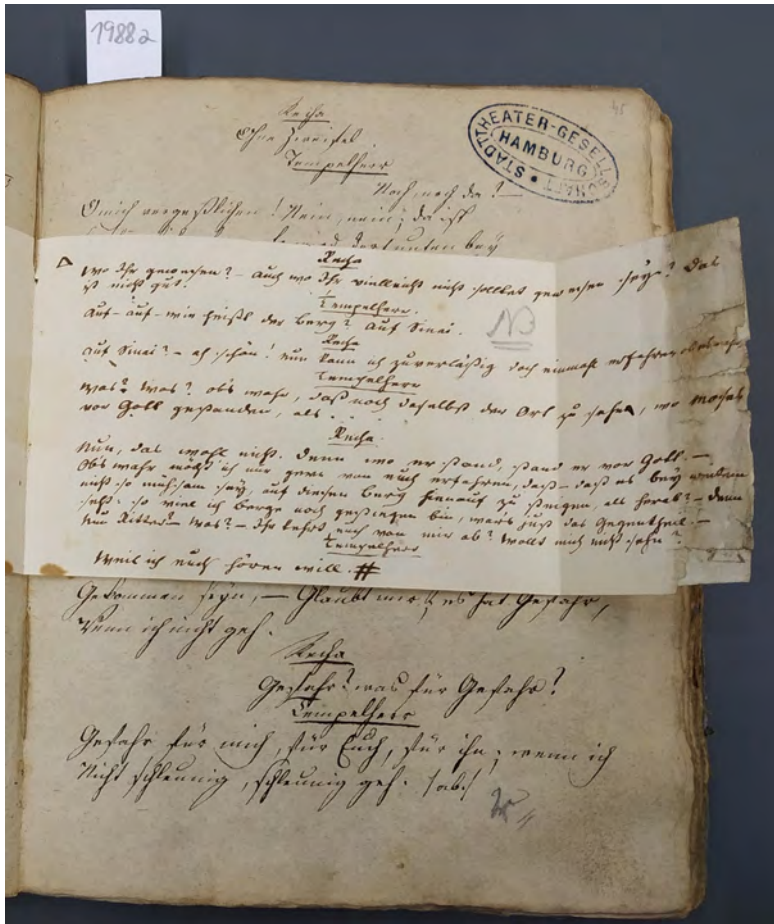 1988a
45
STADTTHEATER-GESELLSCHAFT
HAMBURG
Recha
Ohne Zweifel
Tempelherr
Noch, noch da? —
O mich vergeßlichen! Nein, nein; da ist
dort unten bey
Recha
Wo Ihr gewesen? – auch wo Ihr vielleicht nicht solltet gewesen seyn? Das
ist nicht gut.
Tempelherr.
Auf – auf – wie heißt der Berg? Auf Sinai.
NB
Recha
Auf Sinai? – ah schön! nun kann ich zuverläßig doch einmahl erfahren ob es wahr
Tempelherr
was? was? obs wahr, daß noch daselbst der Ort zu sehn, wo Moses
vor Gott gestanden, als.
Recha.
Nun, das wohl nicht. Denn wo er stand, stand er vor Gott. —
Obs wahr möcht ich nur gern von euch erfahren, daß – daß es bey weitem
nicht so mühsam sey, auf diesen Berg hinauf zu steigen, als herab? – Denn
seht: so viel ich Berge noch gestiegen bin, wars just das Gegentheil. —
Nun Ritter – was? – Ihr kehrt euch von mir ab? Wollt mich nicht sehn?
Tempelherr
Weil ich euch hören will. #
Gekommen seyn, – Glaubt mir, es hat Gefahr,
Wenn ich nicht geh.
Recha
Gefahr? was für Gefahr?
Tempelherr
Gefahr für mich, für Euch, für ihn; wenn ich
Nicht schleunig, schleunig geh. /ab/